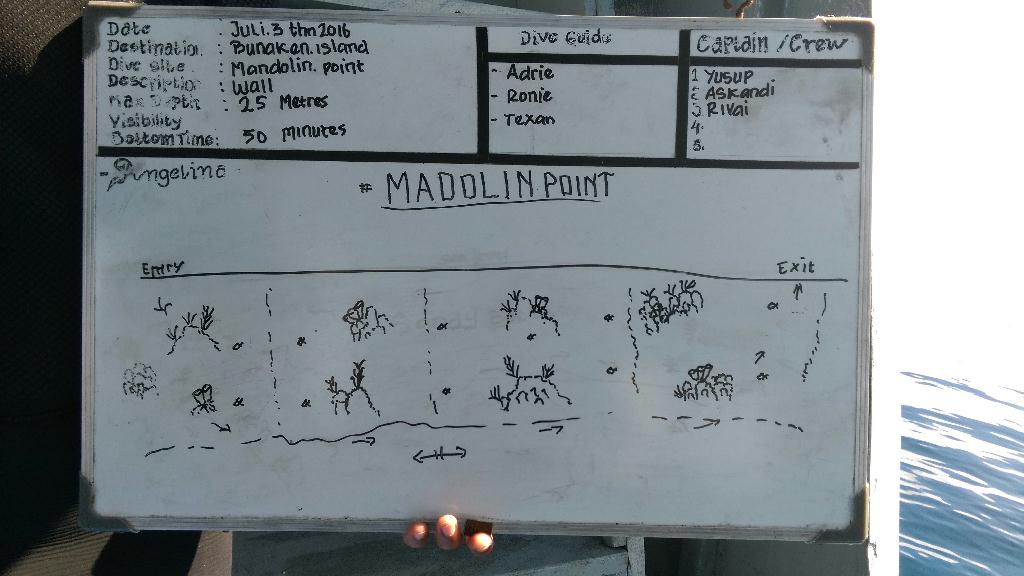 Date : Juli.3 thn 2016
Destination : Bunaken.island
Dive site : Mandolin.point
Description : Wall
Max Depth : 25 Metres
Visibility
Bottom Time: 50 minutes
Dive Guide
- Adrie
- Ronie
- Texan
Captain / Crew
1 YUSUP
2 ASKandi
3 RIVai
4.
5.
- Angelina
# MADOLIN POINT
Entry
Exit